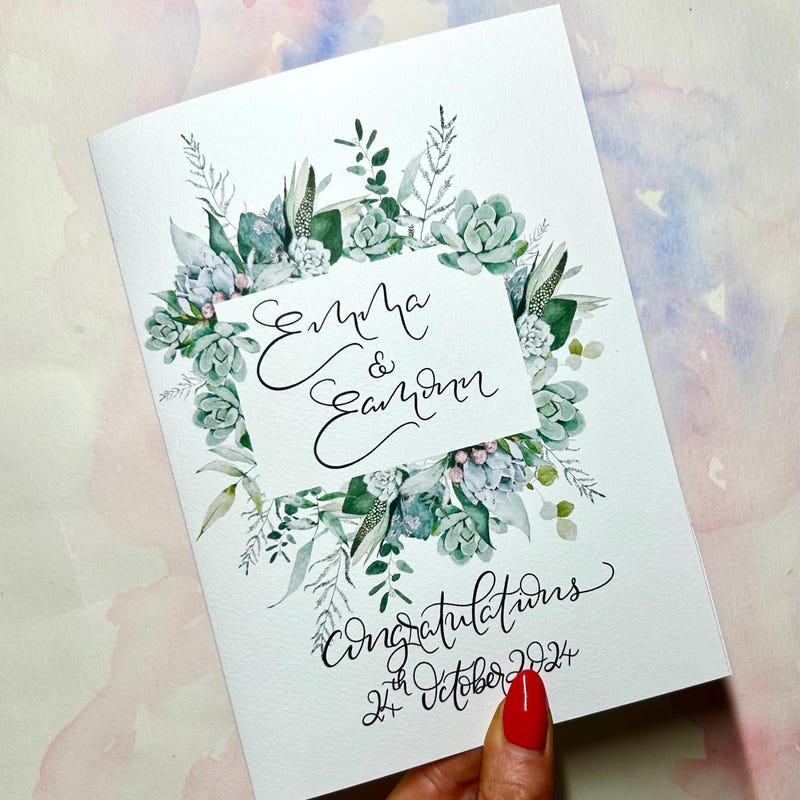 Emma
&
Eamonn
Congratulations
24th October 2024